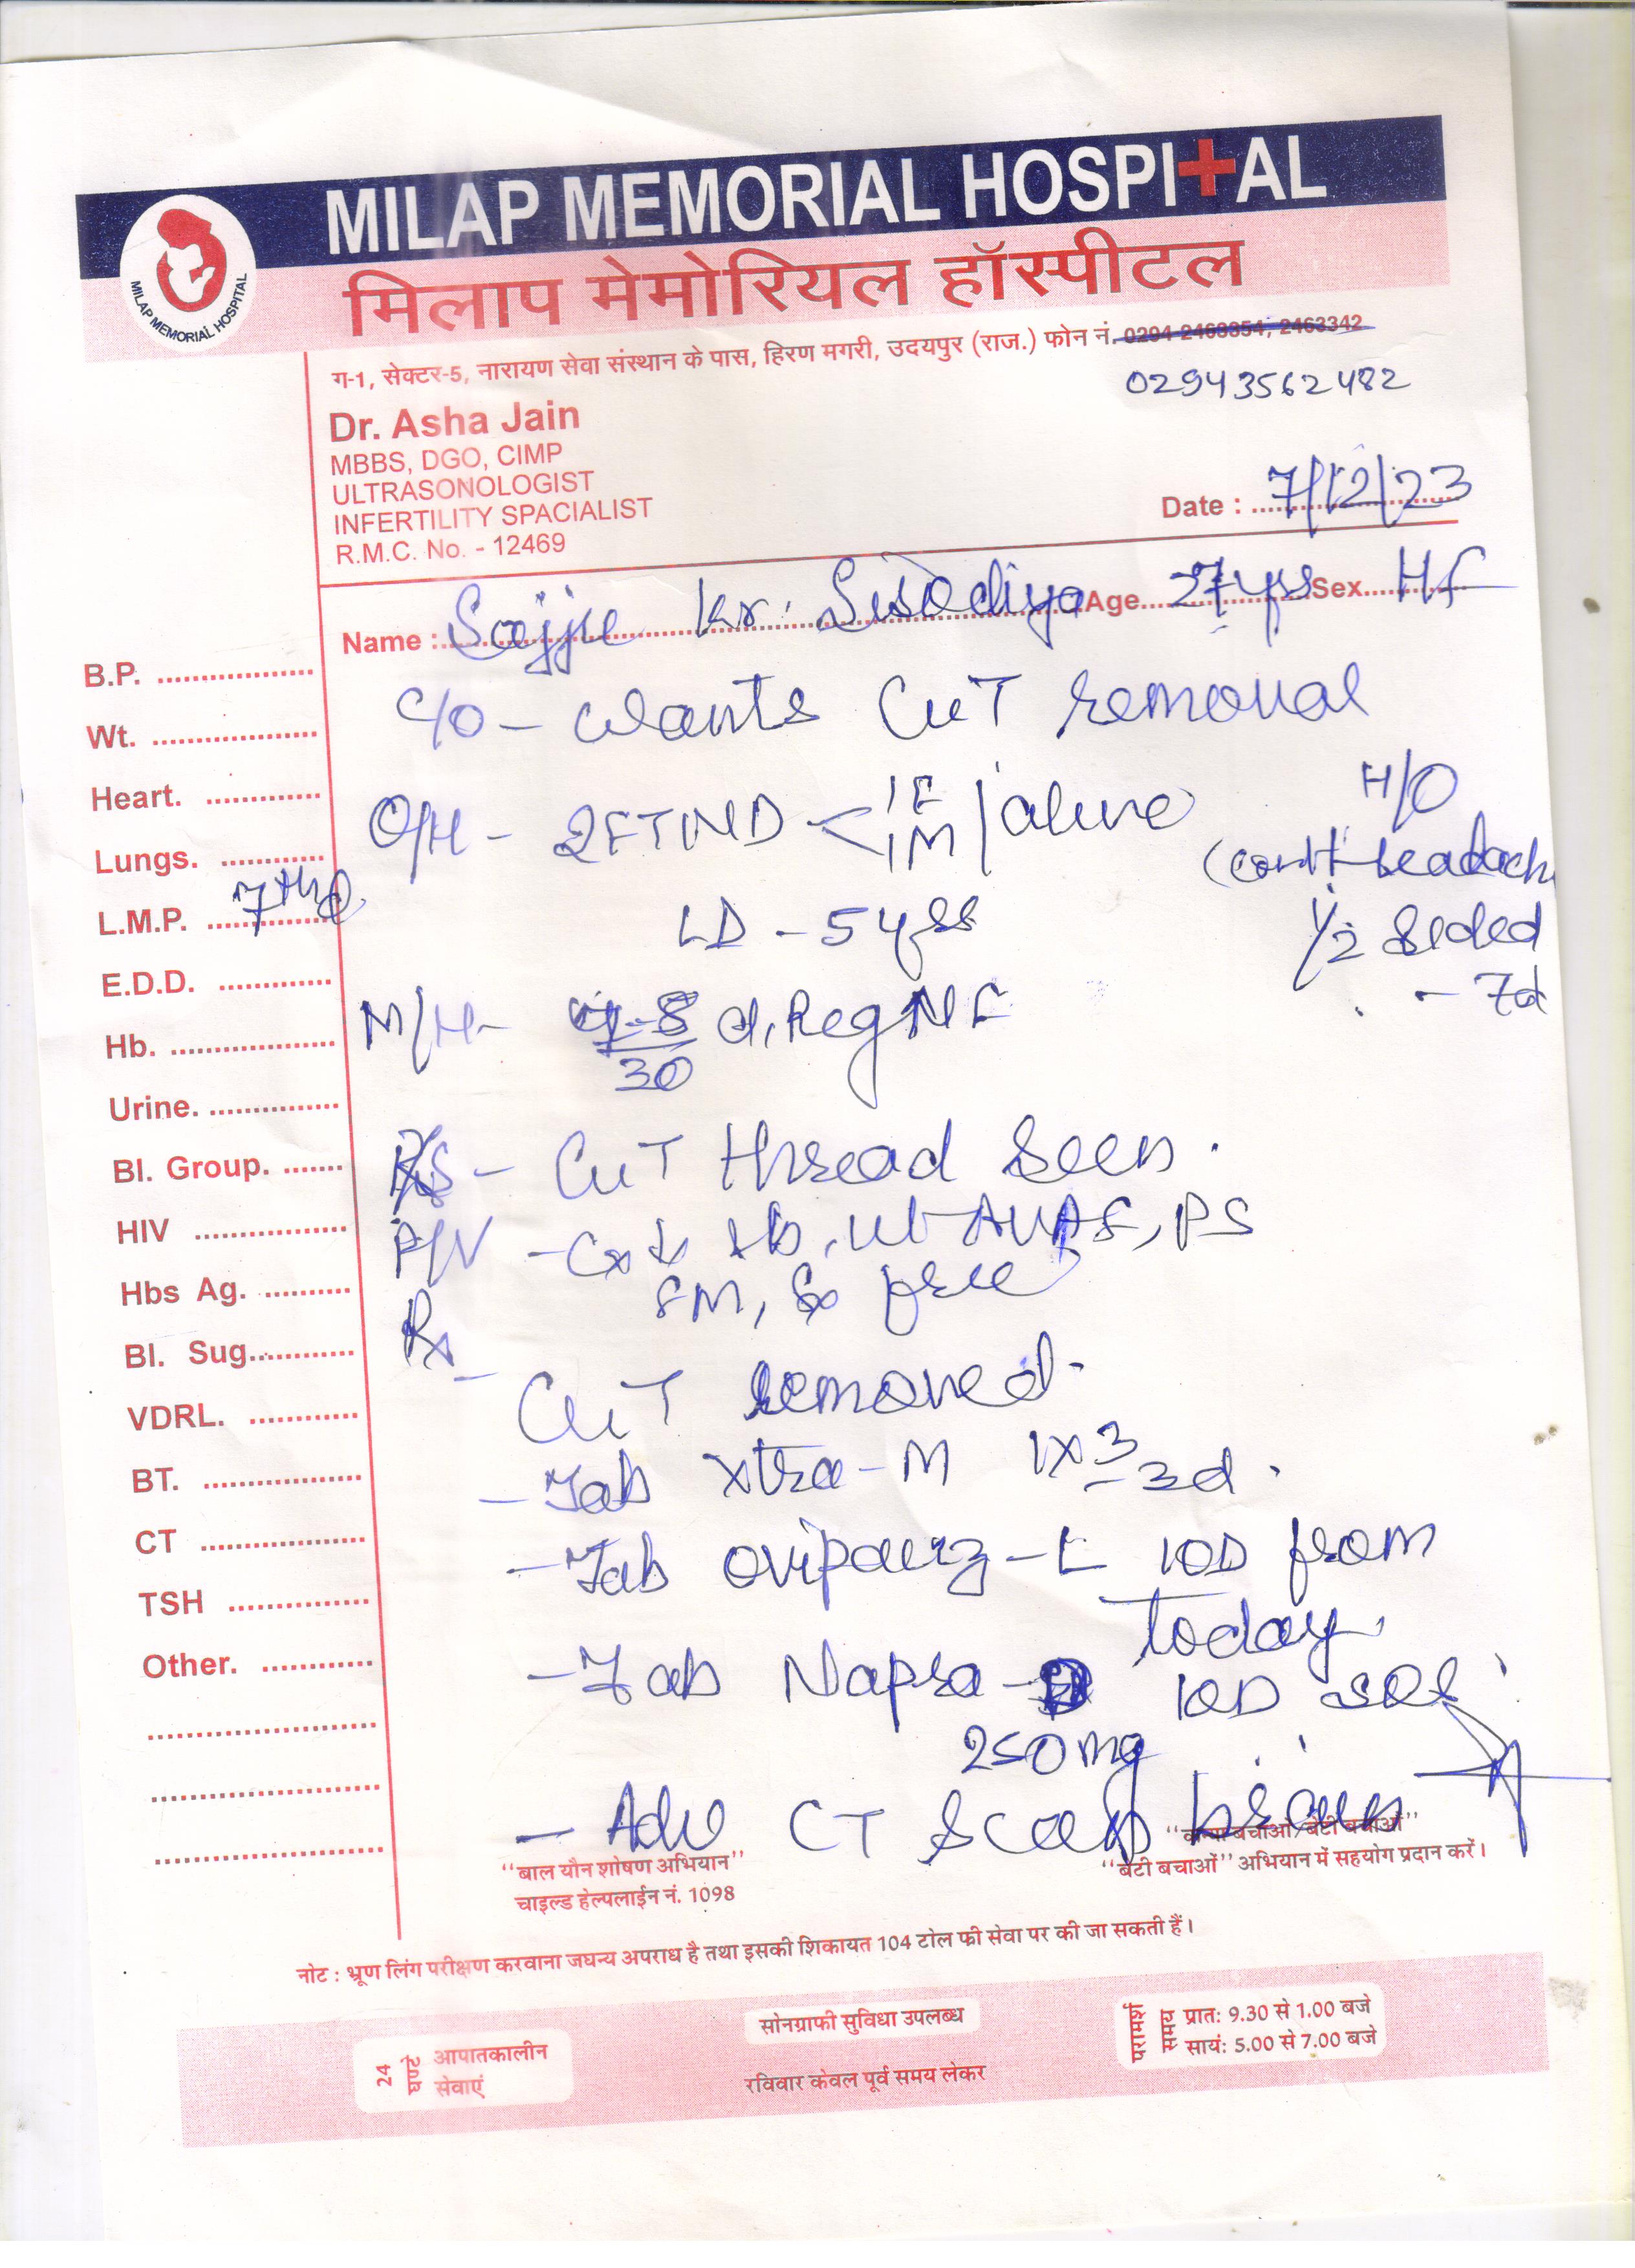 MILAP MEMORIAL HOSPITAL
मिलाप मेमोरियल हॉस्पीटल
MILAP MEMORIAL HOSPITAL
ग-1, सेक्टर-5, नारायण सेवा संस्थान के पास, हिरण मगरी, उदयपुर (राज.) फोन नं. 0294-2463354, 2463342
02943562482
Dr. Asha Jain
MBBS, DGO, CIMP
ULTRASONOLOGIST
INFERTILITY SPACIALIST
R.M.C. No. - 12469
Date : 7/12/23
Name : Kr. Sisodiya Age 27yrs Sex
B.P.
Wt.
Heart.
Lungs.
L.M.P. 7th d
E.D.D.
Hb.
Urine.
Bl. Group.
HIV
Hbs Ag.
Bl. Sug.
VDRL.
BT.
CT
TSH
Other.
C/O - Wants CuT removal
O/H - 2FTND < 1F 1M / alive
LD - 5 yrs
H/O
(cont headach
1/2 sided
- 7d
M/H - d, Reg
30
CuT thread seen.
P/V - Cx ↓ , ut AVAF, PS
FM, Fx free
Rx
- CuT removed.
- Tab Xtra-M 1x3 3d.
- Tab ovipauz-L 1OD from
today.
- Tab Napra-D 1OD sos
250mg
- Adv CT Scan brain
"बाल यौन शोषण अभियान"
चाइल्ड हेल्पलाईन नं. 1098
"कन्या बचाओं/बेटी बचाओं"
"बेटी बचाओं" अभियान में सहयोग प्रदान करें।
नोट : भ्रूण लिंग परीक्षण करवाना जघन्य अपराध है तथा इसकी शिकायत 104 टोल फ्री सेवा पर की जा सकती हैं।
24 घण्टे आपातकालीन सेवाएं
सोनग्राफी सुविधा उपलब्ध
रविवार केवल पूर्व समय लेकर
परामर्श समय
प्रातः 9.30 से 1.00 बजे
सायं: 5.00 से 7.00 बजे